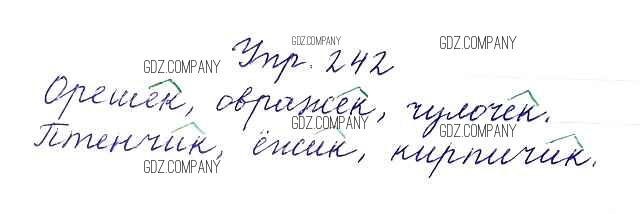 GDZ.COMPANY GDZ.COMPANY
Упр. 242
GDZ.COMPANY
Орешек, овражек, чулочек.
GDZ.COMPANY GDZ.COMPANY
Птенчик, ёжик, кирпичик.
GDZ.COMPANY